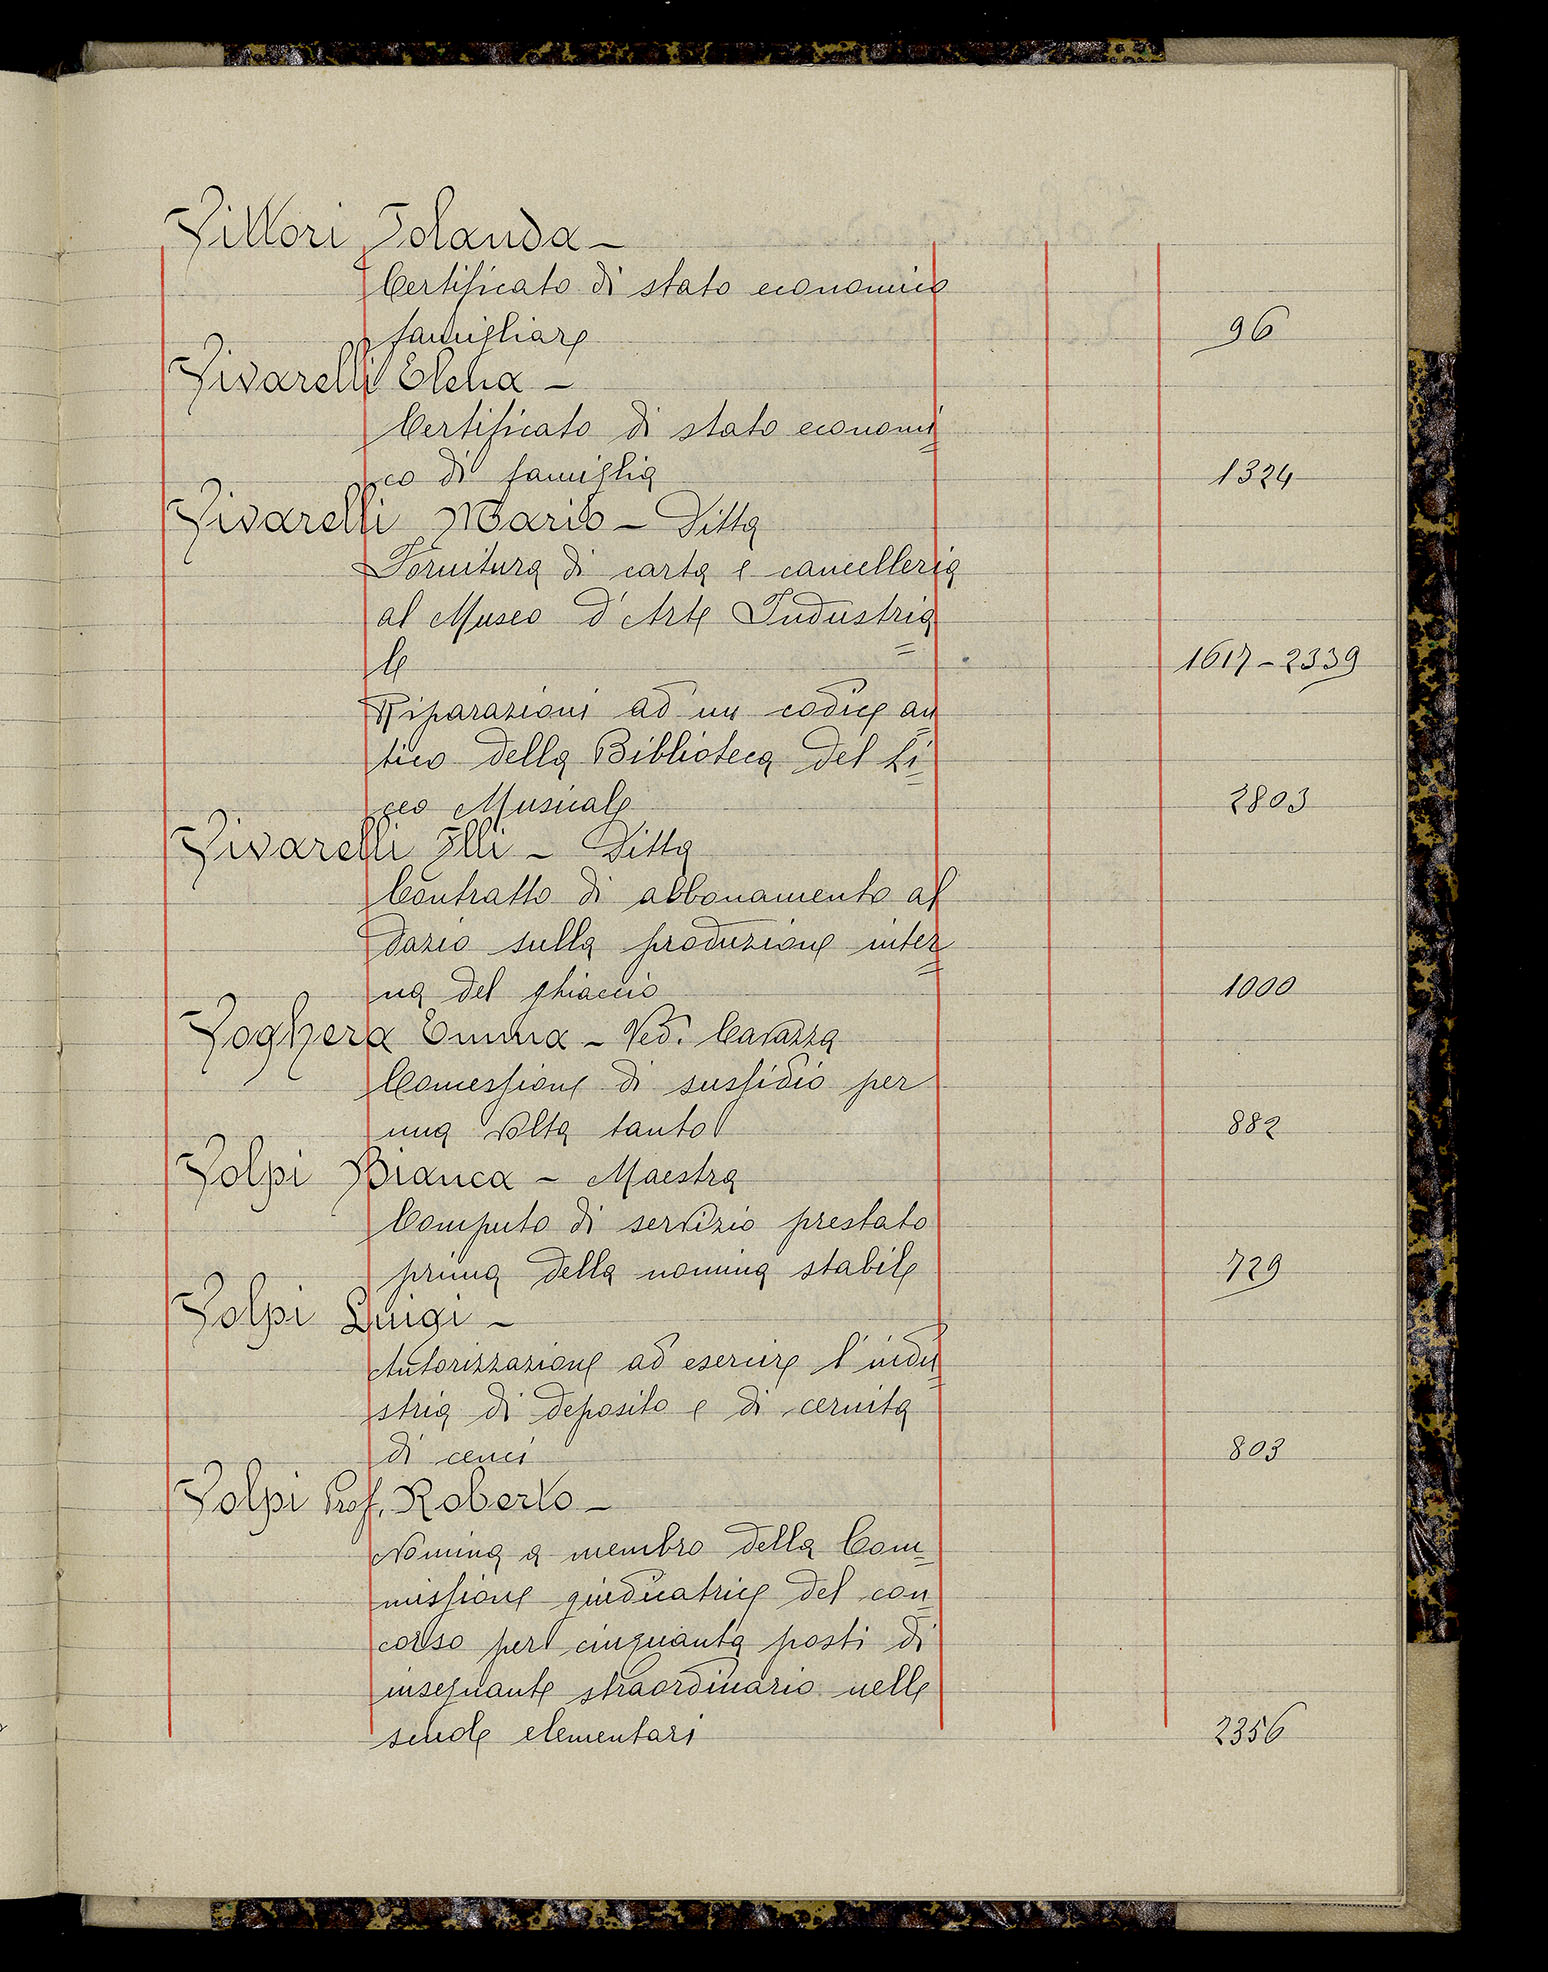 Vittori Iolanda –
Certificato di stato economico
famigliare 96
Vivarelli Elena –
Certificato di stato economi=
co di famiglia 1324
Vivarelli Mario – Ditta
Fornitura di carta e cancelleria
al Museo d'Arte Industria=
le 1617 – 2339
Riparazioni ad un codice an=
tico della Biblioteca del Li=
ceo Musicale 2803
Vivarelli Flli – Ditta
Contratto di abbonamento al
dazio sulla produzione inter=
na del ghiaccio 1000
Voghera Emma – Ved. Cavazza
Concessione di sussidio per
una volta tanto 882
Volpi Bianca – Maestra
Computo di servizio prestato
prima della nomina stabile 729
Volpi Luigi –
Autorizzazione ad esercire l'indu=
stria di deposito e di cernita
di cenci 803
Volpi Prof. Roberto –
Nomina a membro della Com=
missione giudicatrice del con=
corso per cinquanta posti di
insegnante straordinario nelle
scuole elementari 2356